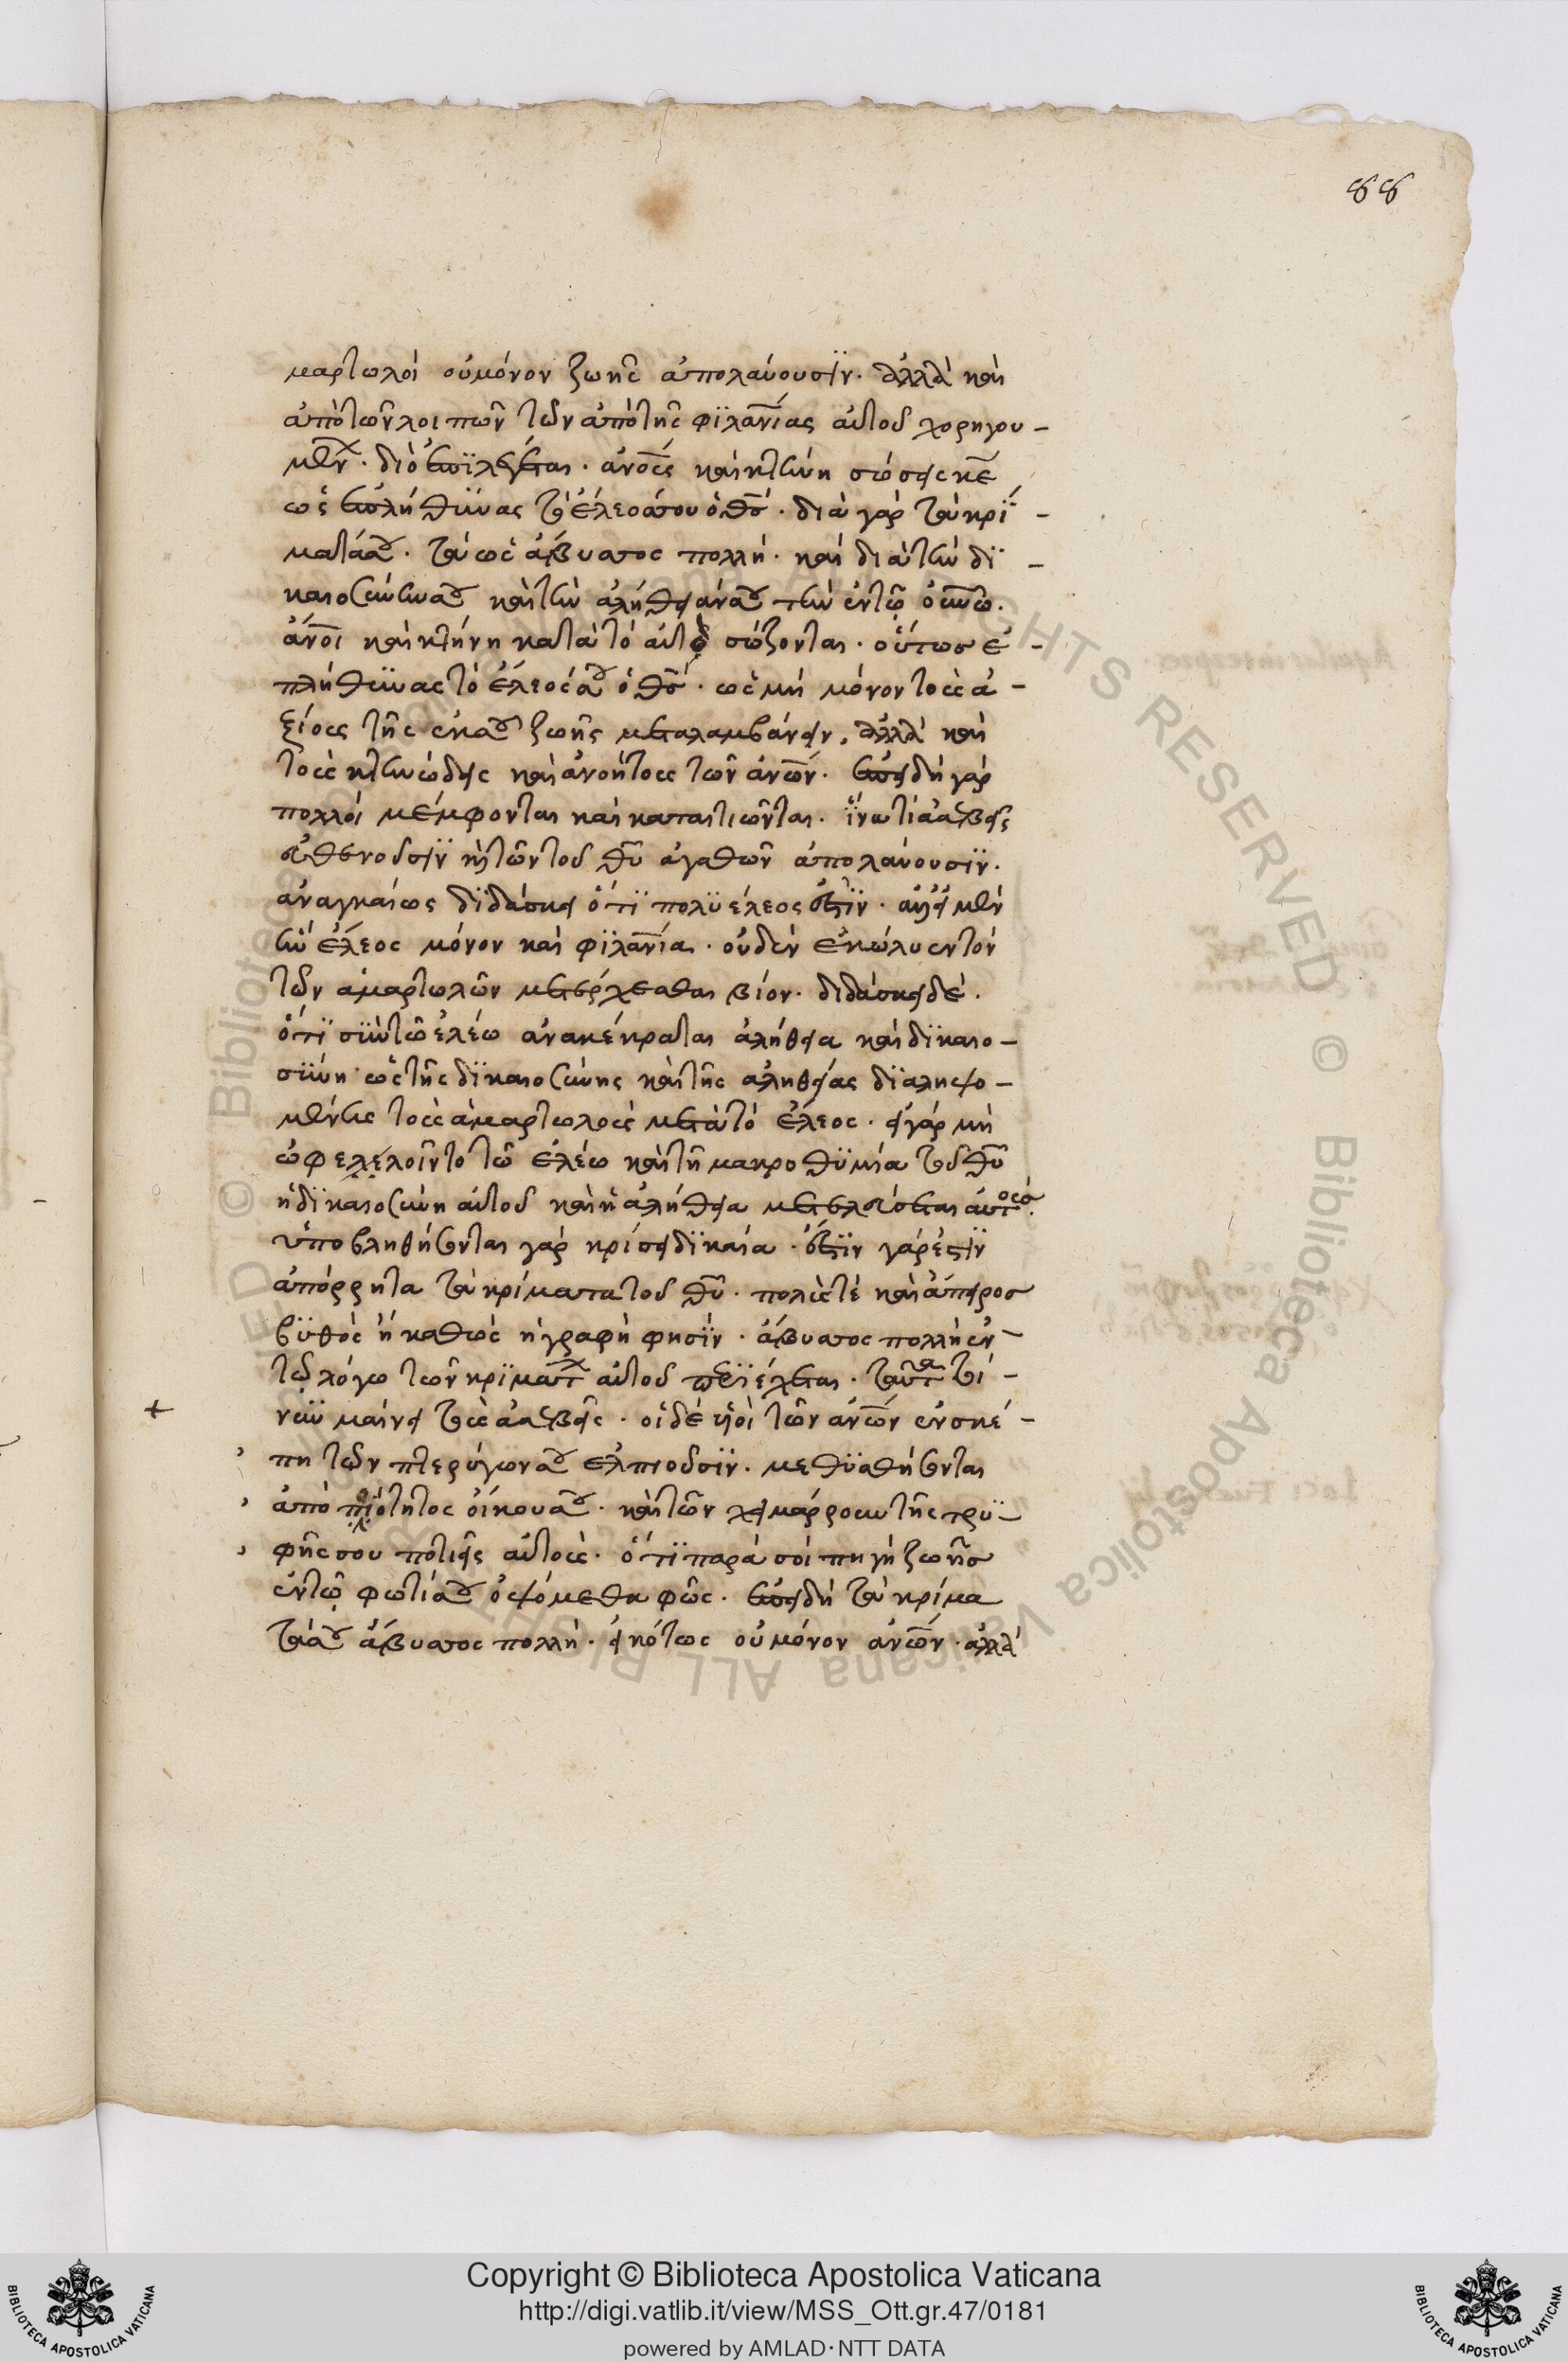 88
μαρτωλοὶ οὐ μόνον ζωῆς ἀπολαύουσϊν. ἀλλὰ καὶ
ἀπὸ τῶν λοιπῶν τῶν ἀπὸ τῆς φϊλαν̅ίας αὐτοῦ χορηγου-
μέν. διὸ ἐπϊλέγεται. ἀνο̅υς καὶ κτήνη σώσεις κε̅
ὡς ἐπλήθϋνας τὸ ἔλεός σου ὁ θς̅. διὰ γὰρ τὰ κρί-
ματά σου. τὰ ὡς ἄβυσσος πολλή. καὶ διὰ τὴν δϊ-
καιοσύνην σου καὶ τὴν ἀλήθειάν σου τὴν ἐν τῷ
ἀνο̅ι καὶ κτήνη κατὰ τὸ αὐτὸ σώζονται. οὕτως ἐ-
πλήθϋνας τὸ ἔλεός σου ὁ θς̅. ὡς μὴ μόνον τοὺς ἀ-
ξίους τῆς ἐκ σου ζωῆς μεταλαμβάνειν, ἀλλὰ καὶ
τοὺς κτηνώδεις καὶ ἀνοήτους τῶν ἀνω̅ν. ἐπειδὴ γὰρ
πολλοὶ μέμφονται καὶ καταιτιῶνται. ἵνα τί ἀσεβεῖς
εὐθενοῦσϊν καὶ τῶν τοῦ θυ̅ ἀγαθῶν ἀπολαύουσϊν.
ἀναγκαίως δϊδάσκει ὅτϊ πολϋέλεος ἐστϊν. καὶ εἰ μὲν
ἦν ἔλεος μόνον καὶ φϊλαν̅ία. οὐδὲν ἐκώλυεν τὸν
τῶν ἁμαρτωλῶν μετέρχεσθαι βίον. διδάσκει δέ.
ὅτϊ σϋν τῷ ἐλέω ἀνακέκραται ἀλήθεια καὶ δϊκαιο-
σύνη ὡς τῆς δϊκαιοσύνης καὶ τῆς ἀληθείας δϊαληψο-
μένης τοὺς ἁμαρτωλοὺς μετὰ τὸ ἔλεος. εἰ γὰρ μὴ
ὠφελελοῖντο τῶ ἐλέω καὶ τῆ μακροθϋμία τοῦ θυ̅
ἡ δϊκαιοσύνη αὐτοῦ καὶ ἡ ἀλήθεια μετελεύσεται αὐτούς.
ὑποβληθήσονται γὰρ κρίσει δϊκαία. ἔστϊν γὰρ ἔστϊν
ἀπόρρητα τὰ κρίματα τοῦ θυ̅. πολύς τέ καὶ ἄπειρος
βϋθὸς ἢ καθὼς ἡ γραφὴ φησϊν. ἄβυσσος πολλὴ ἐν
τῷ λόγω τῶν κρϊμάτ αὐτοῦ περϊέχεται. ταῦτα
μαίνει τοὺς ἀσεβεῖς. οἱ δὲ υἱοὶ τῶν ἀνω̅ν ἐν σκέ-
πη τῶν πτερύγων σου ἐλπιοῦσϊν. μεθϋσθήσονται
ἀπὸ πιότητος οἴκου σου. καὶ τὸν χειμάρρουν τῆς τρϋ-
φῆς σου ποτιεῖς αὐτούς. ὅτϊ παρὰ σοὶ πηγὴ ζωῆς
ἐν τῷ φωτί σου ὀψόμεθα φῶς. ἐπειδὴ τὰ κρίμα
τά σου ἄβυσσος πολλή. εἰκότως οὐ μόνον ἀνω̅ν. ἀλλὰ
Copyright © Biblioteca Apostolica Vaticana
http://digi.vatlib.it/view/MSS_Ott.gr.47/0181
powered by AMLAD·NTT DATA
BIBLIOTECA APOSTOLICA VATICANA
BIBLIOTECA APOSTOLICA VATICANA